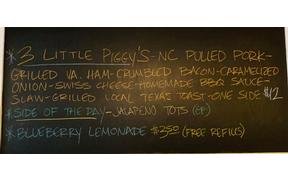 *3 LITTLE PIGGY'S-NC PULLED PORK-
GRILLED VA. HAM-CRUMBLED BACON-CARAMELIZED
ONION-SWISS CHEESE-HOMEMADE BBQ SAUCE-
SLAW-GRILLED LOCAL TEXAS TOAST-ONE SIDE $12
*SIDE OF THE DAY-JALAPENO TOTS (GF)
*BLUEBERRY LEMONADE $3.50 (FREE REFILLS)